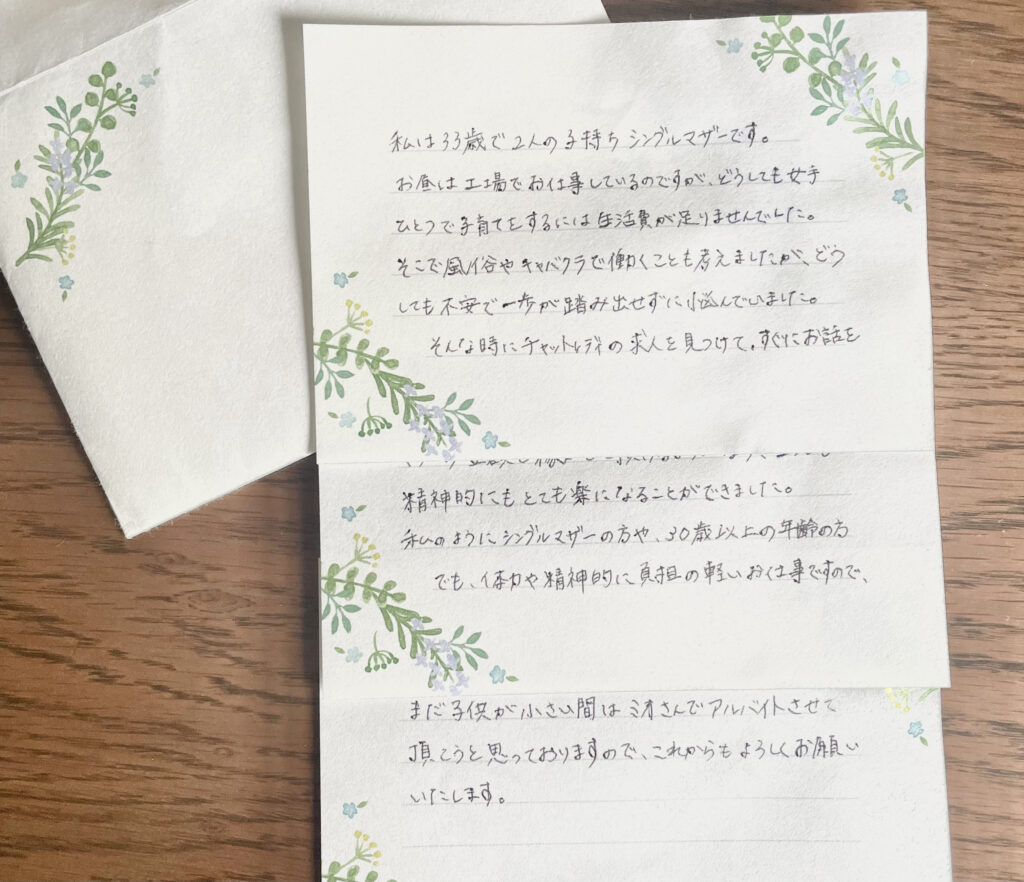 私は33歳で2人の子持ちシングルマザーです。
お昼は工場でお仕事しているのですが、どうしても女手
ひとつで子育てをするには生活費が足りませんでした。
そこで風俗やキャバクラで働くことも考えましたが、どう
しても不安で一歩が踏み出せずに悩んでいました。
そんな時にチャットレディの求人を見つけて、すぐにお話を
精神的にもとても楽になることができました。
私のようにシングルマザーの方や、30歳以上の年齢の方
でも、体力や精神的に負担の軽いお仕事ですので、
まだ子供が小さい間はミオさんでアルバイトさせて
頂こうと思っておりますので、これからもよろしくお願い
いたします。